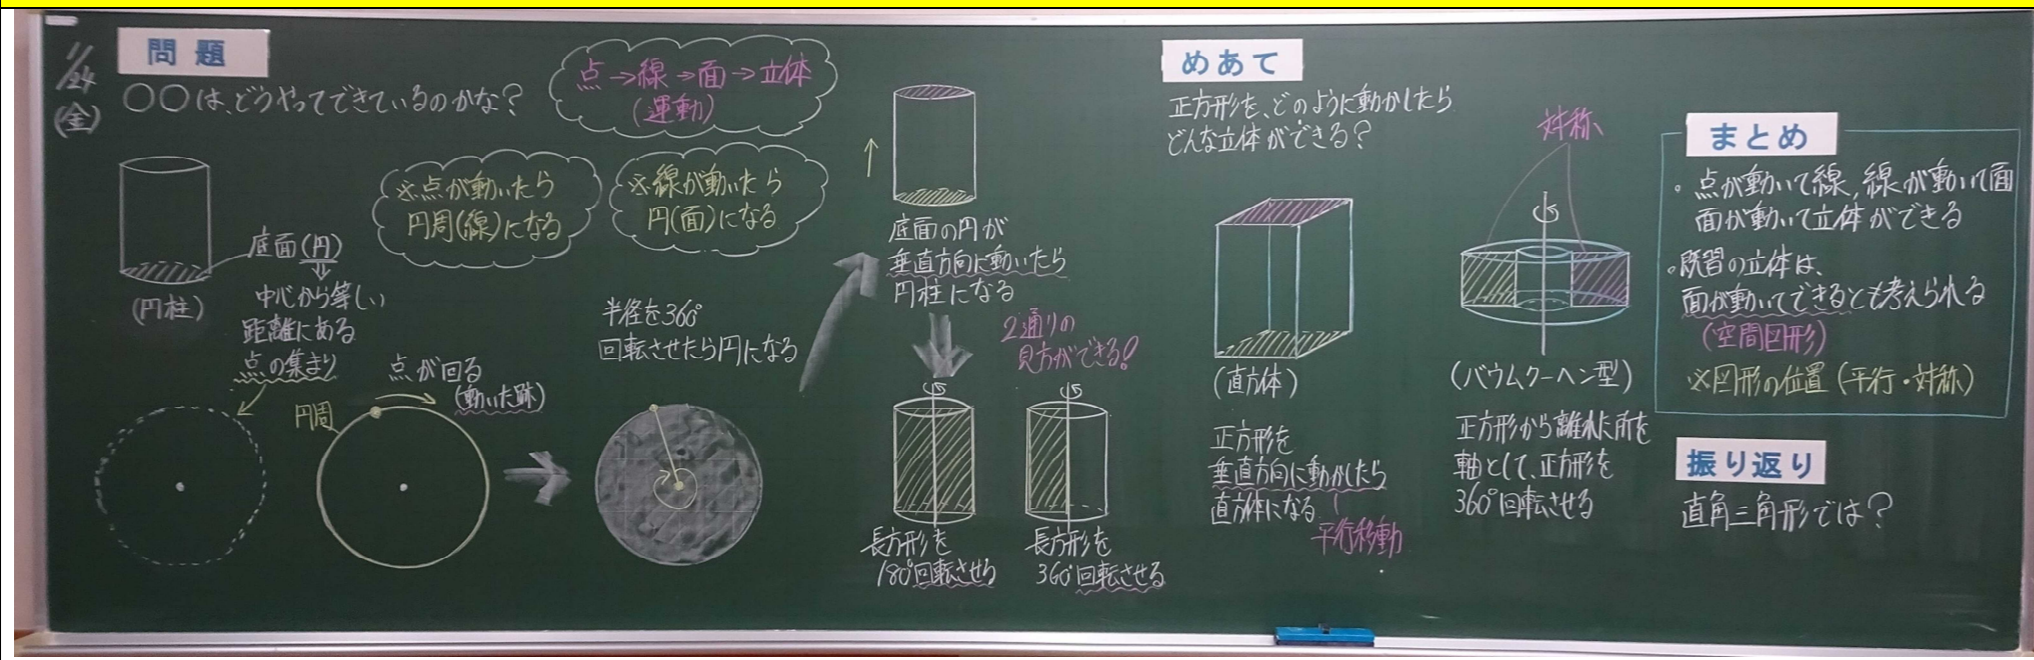 11/24
(金)
問題
○○は、どうやってできているのかな？
点→線→面→立体
(運動)
(円柱)
底面(円)
中心から等しい
距離にある
点の集まり
※点が動いたら
円周(線)になる
※線が動いたら
円(面)になる
円周
点が回る
(動いた跡)
半径を360°
回転させたら円になる
底面の円が
垂直方向に動いたら
円柱になる
2通りの
見方ができる！
長方形を
180°回転させる
長方形を
360°回転させる
めあて
正方形を、どのように動かしたら
どんな立体ができる？
(直方体)
正方形を
垂直方向に動かしたら
直方体になる
平行移動
対称
(バウムクーヘン型)
正方形から離れた所を
軸として、正方形を
360°回転させる
まとめ
・点が動いて線，線が動いて面
面が動いて立体ができる
・既習の立体は、
面が動いてできるとも考えられる
(空間図形)
※図形の位置(平行・対称)
振り返り
直角三角形では？